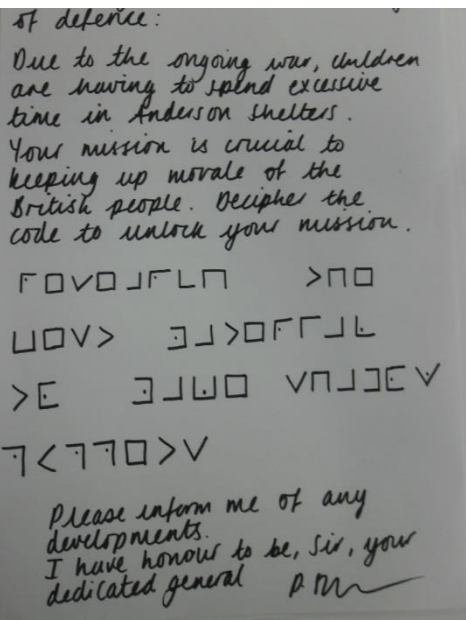 of defence:
Due to the ongoing war, children
are having to spend excessive
time in Anderson shelters.
Your mission is crucial to
keeping up morale of the
British people. Decipher the
code to unlock your mission.
Please inform me of any
developments.
I have honour to be, Sir, your
dedicated general